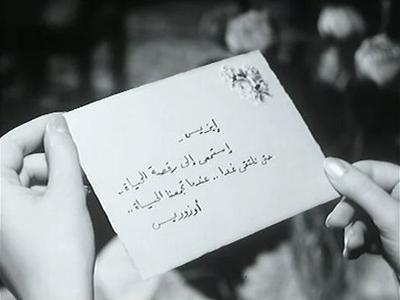 إيزيس..
إستمعى إلى رقصة الحياة..
حتى نلتقى غدا.. عندما تجمعنا الحياة..
أوزوريس